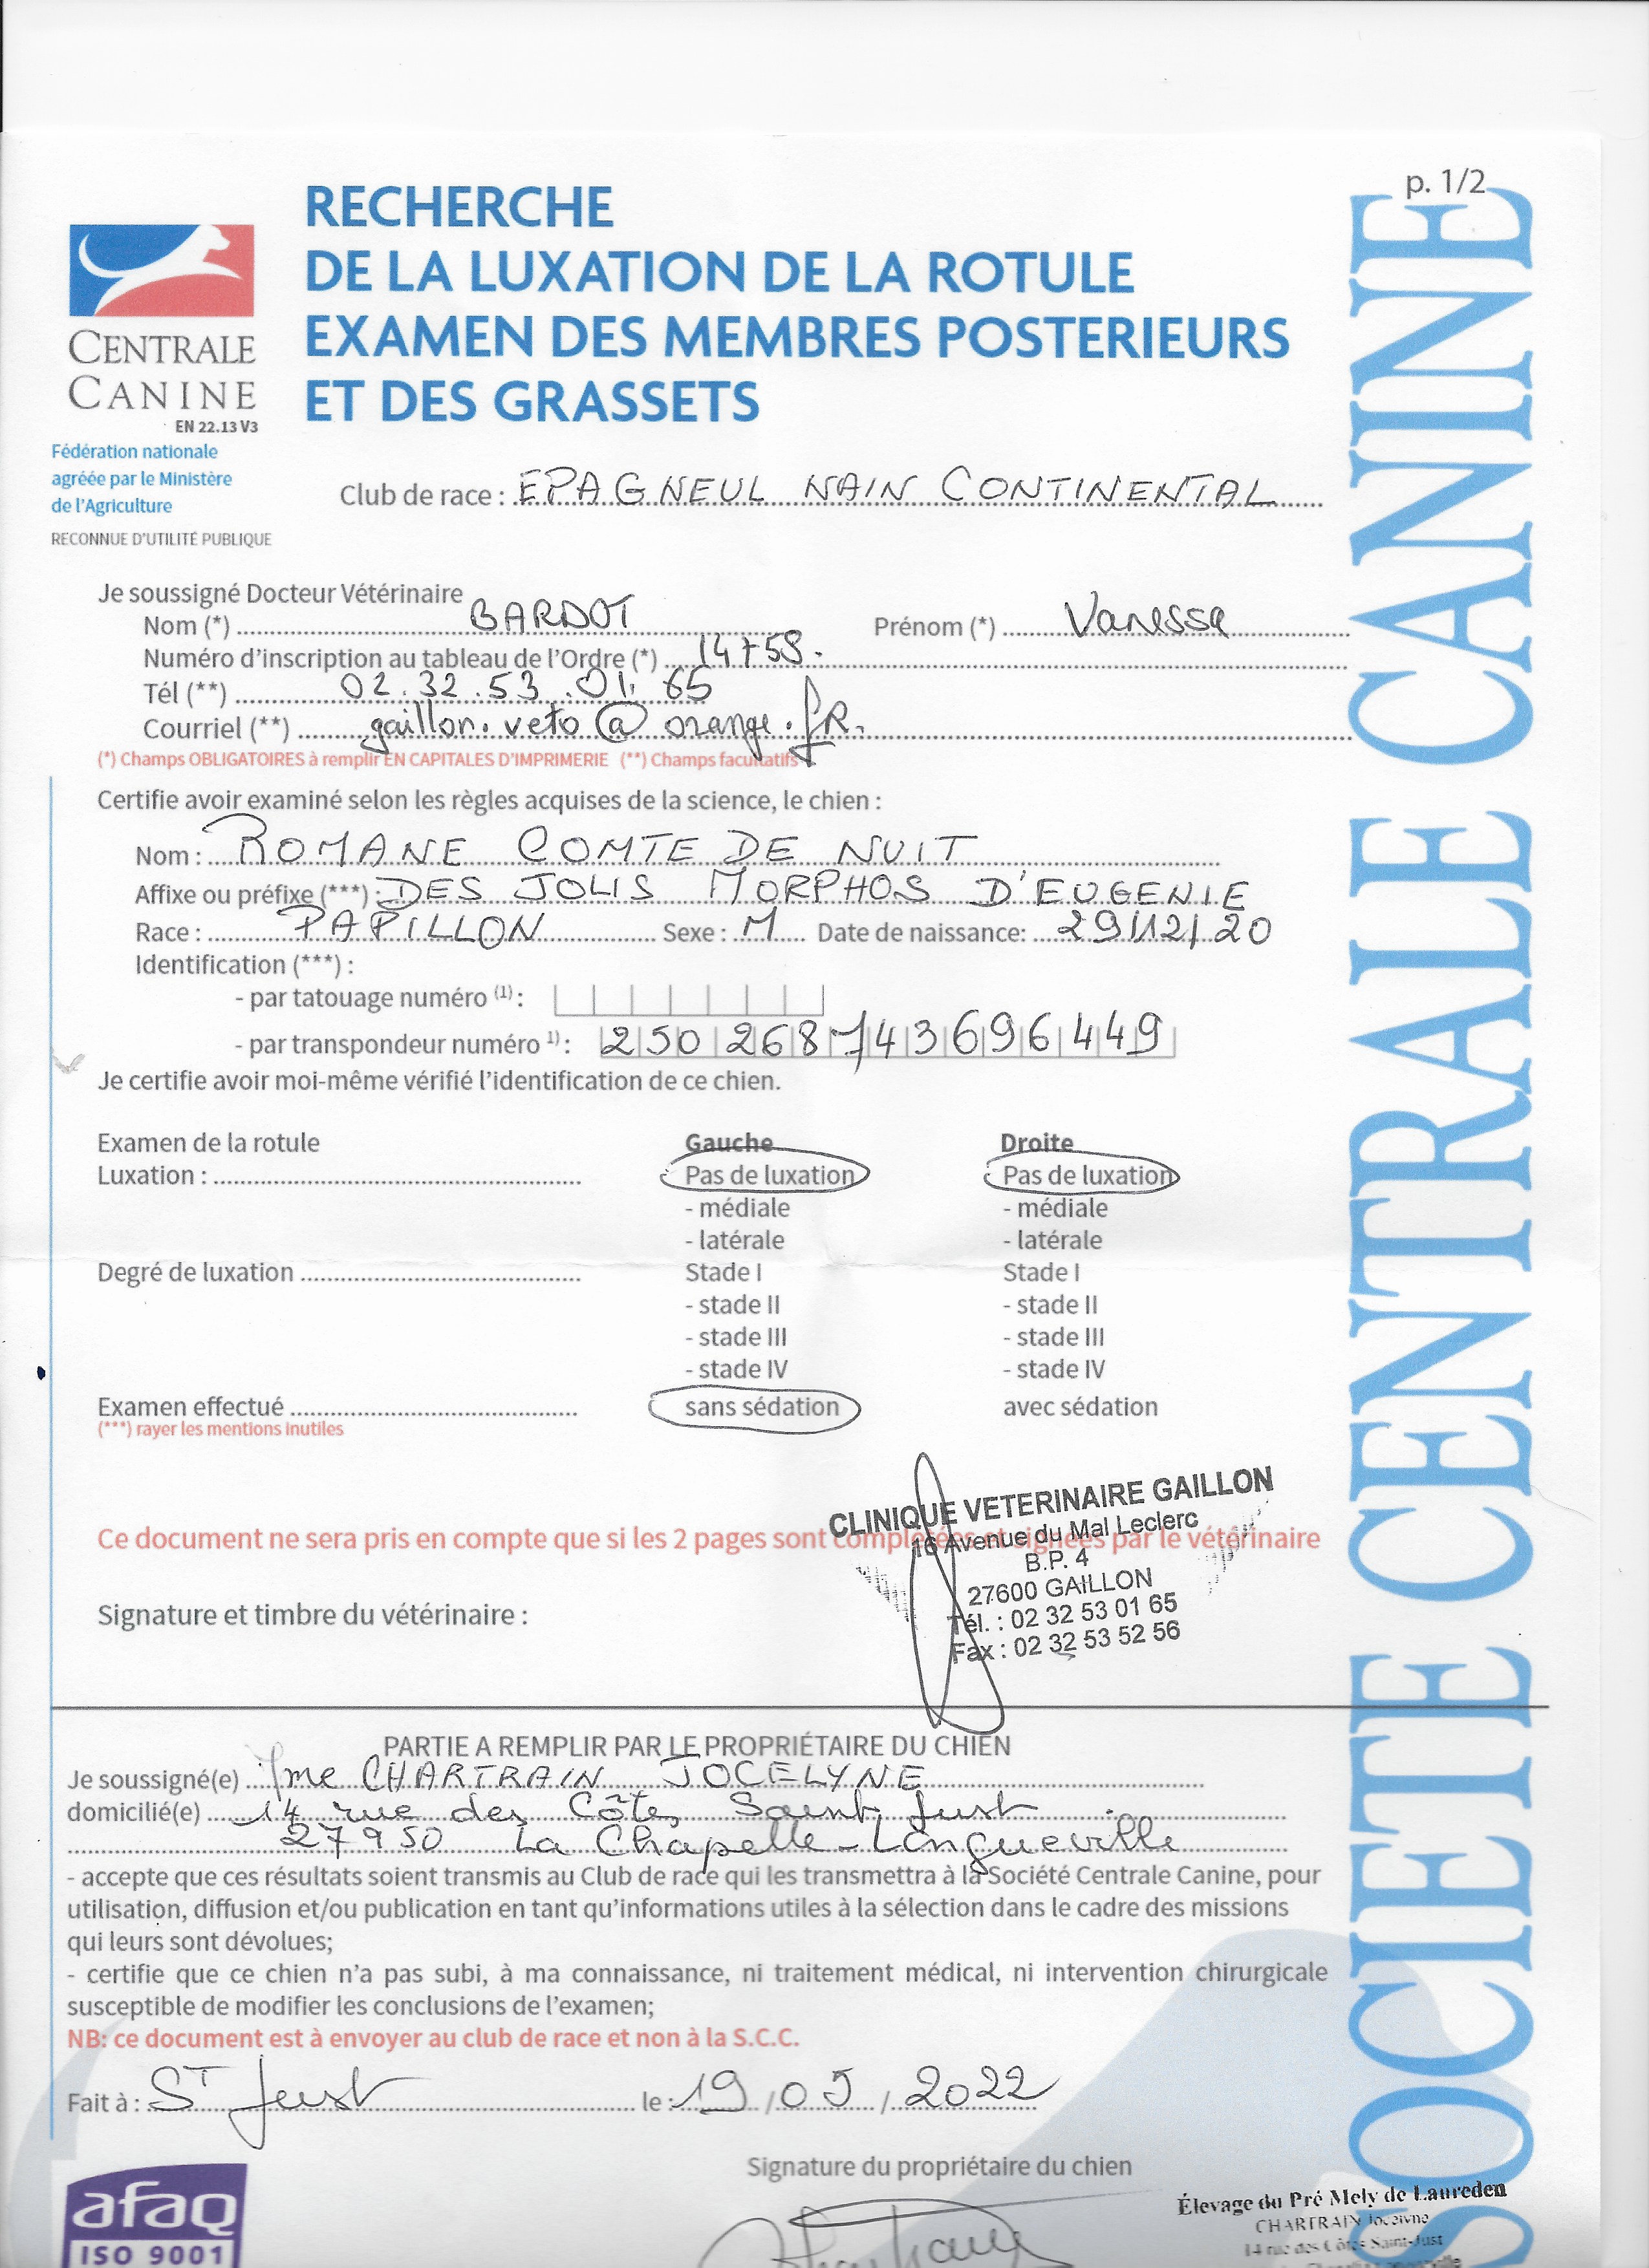 p. 1/2
RECHERCHE
DE LA LUXATION DE LA ROTULE
EXAMEN DES MEMBRES POSTERIEURS
ET DES GRASSETS
CENTRALE
CANINE
EN 22.13 V3
Fédération nationale
agréée par le Ministère
de l'Agriculture
RECONNUE D'UTILITÉ PUBLIQUE
SOCIETE CENTRALE CANINE
Club de race : EPAGNEUL NAIN CONTINENTAL
Je soussigné Docteur Vétérinaire
Nom (*) BARDOT Prénom (*) Vanessa
Numéro d'inscription au tableau de l'Ordre (*)
Tél (**) 02.32.53.01.65
Courriel (**) gaillon.veto@orange.fR.
(*) Champs OBLIGATOIRES à remplir EN CAPITALES D'IMPRIMERIE (**) Champs facultatifs
Certifie avoir examiné selon les règles acquises de la science, le chien :
Nom : ROMANE COMTE DE NUIT
Affixe ou préfixe (***) : DES JOLIS MORPHOS D'EUGENIE
Race : PAPILLON Sexe : M Date de naissance: 29/12/20
Identification (***) :
- par tatouage numéro (1) :
- par transpondeur numéro 1) : 250 268 743 696 449
Je certifie avoir moi-même vérifié l'identification de ce chien.
Examen de la rotule Gauche Droite
Luxation : Pas de luxation Pas de luxation
- médiale - médiale
- latérale - latérale
Degré de luxation Stade I Stade I
- stade II - stade II
- stade III - stade III
- stade IV - stade IV
Examen effectué sans sédation avec sédation
(***) rayer les mentions inutiles
Ce document ne sera pris en compte que si les 2 pages sont complétées et signées par le vétérinaire
CLINIQUE VETERINAIRE GAILLON
16 Avenue du Mal Leclerc
B.P. 4
27600 GAILLON
Tél. : 02 32 53 01 65
Fax : 02 32 53 52 56
Signature et timbre du vétérinaire :
PARTIE A REMPLIR PAR LE PROPRIÉTAIRE DU CHIEN
Je soussigné(e) Mme CHARTRAIN JOCELYNE
domicilié(e) 14 rue des Côtes Saint Just
27950 La Chapelle-Longueville
- accepte que ces résultats soient transmis au Club de race qui les transmettra à la Société Centrale Canine, pour
utilisation, diffusion et/ou publication en tant qu'informations utiles à la sélection dans le cadre des missions
qui leurs sont dévolues;
- certifie que ce chien n'a pas subi, à ma connaissance, ni traitement médical, ni intervention chirurgicale
susceptible de modifier les conclusions de l'examen;
NB: ce document est à envoyer au club de race et non à la S.C.C.
Fait à : ST Just le : 19/05/2022
Signature du propriétaire du chien
Élevage du Pré Mely de Laureden
CHARTRAIN Jocelyne
14 rue des Côtes Saint-Just
afaq
ISO 9001